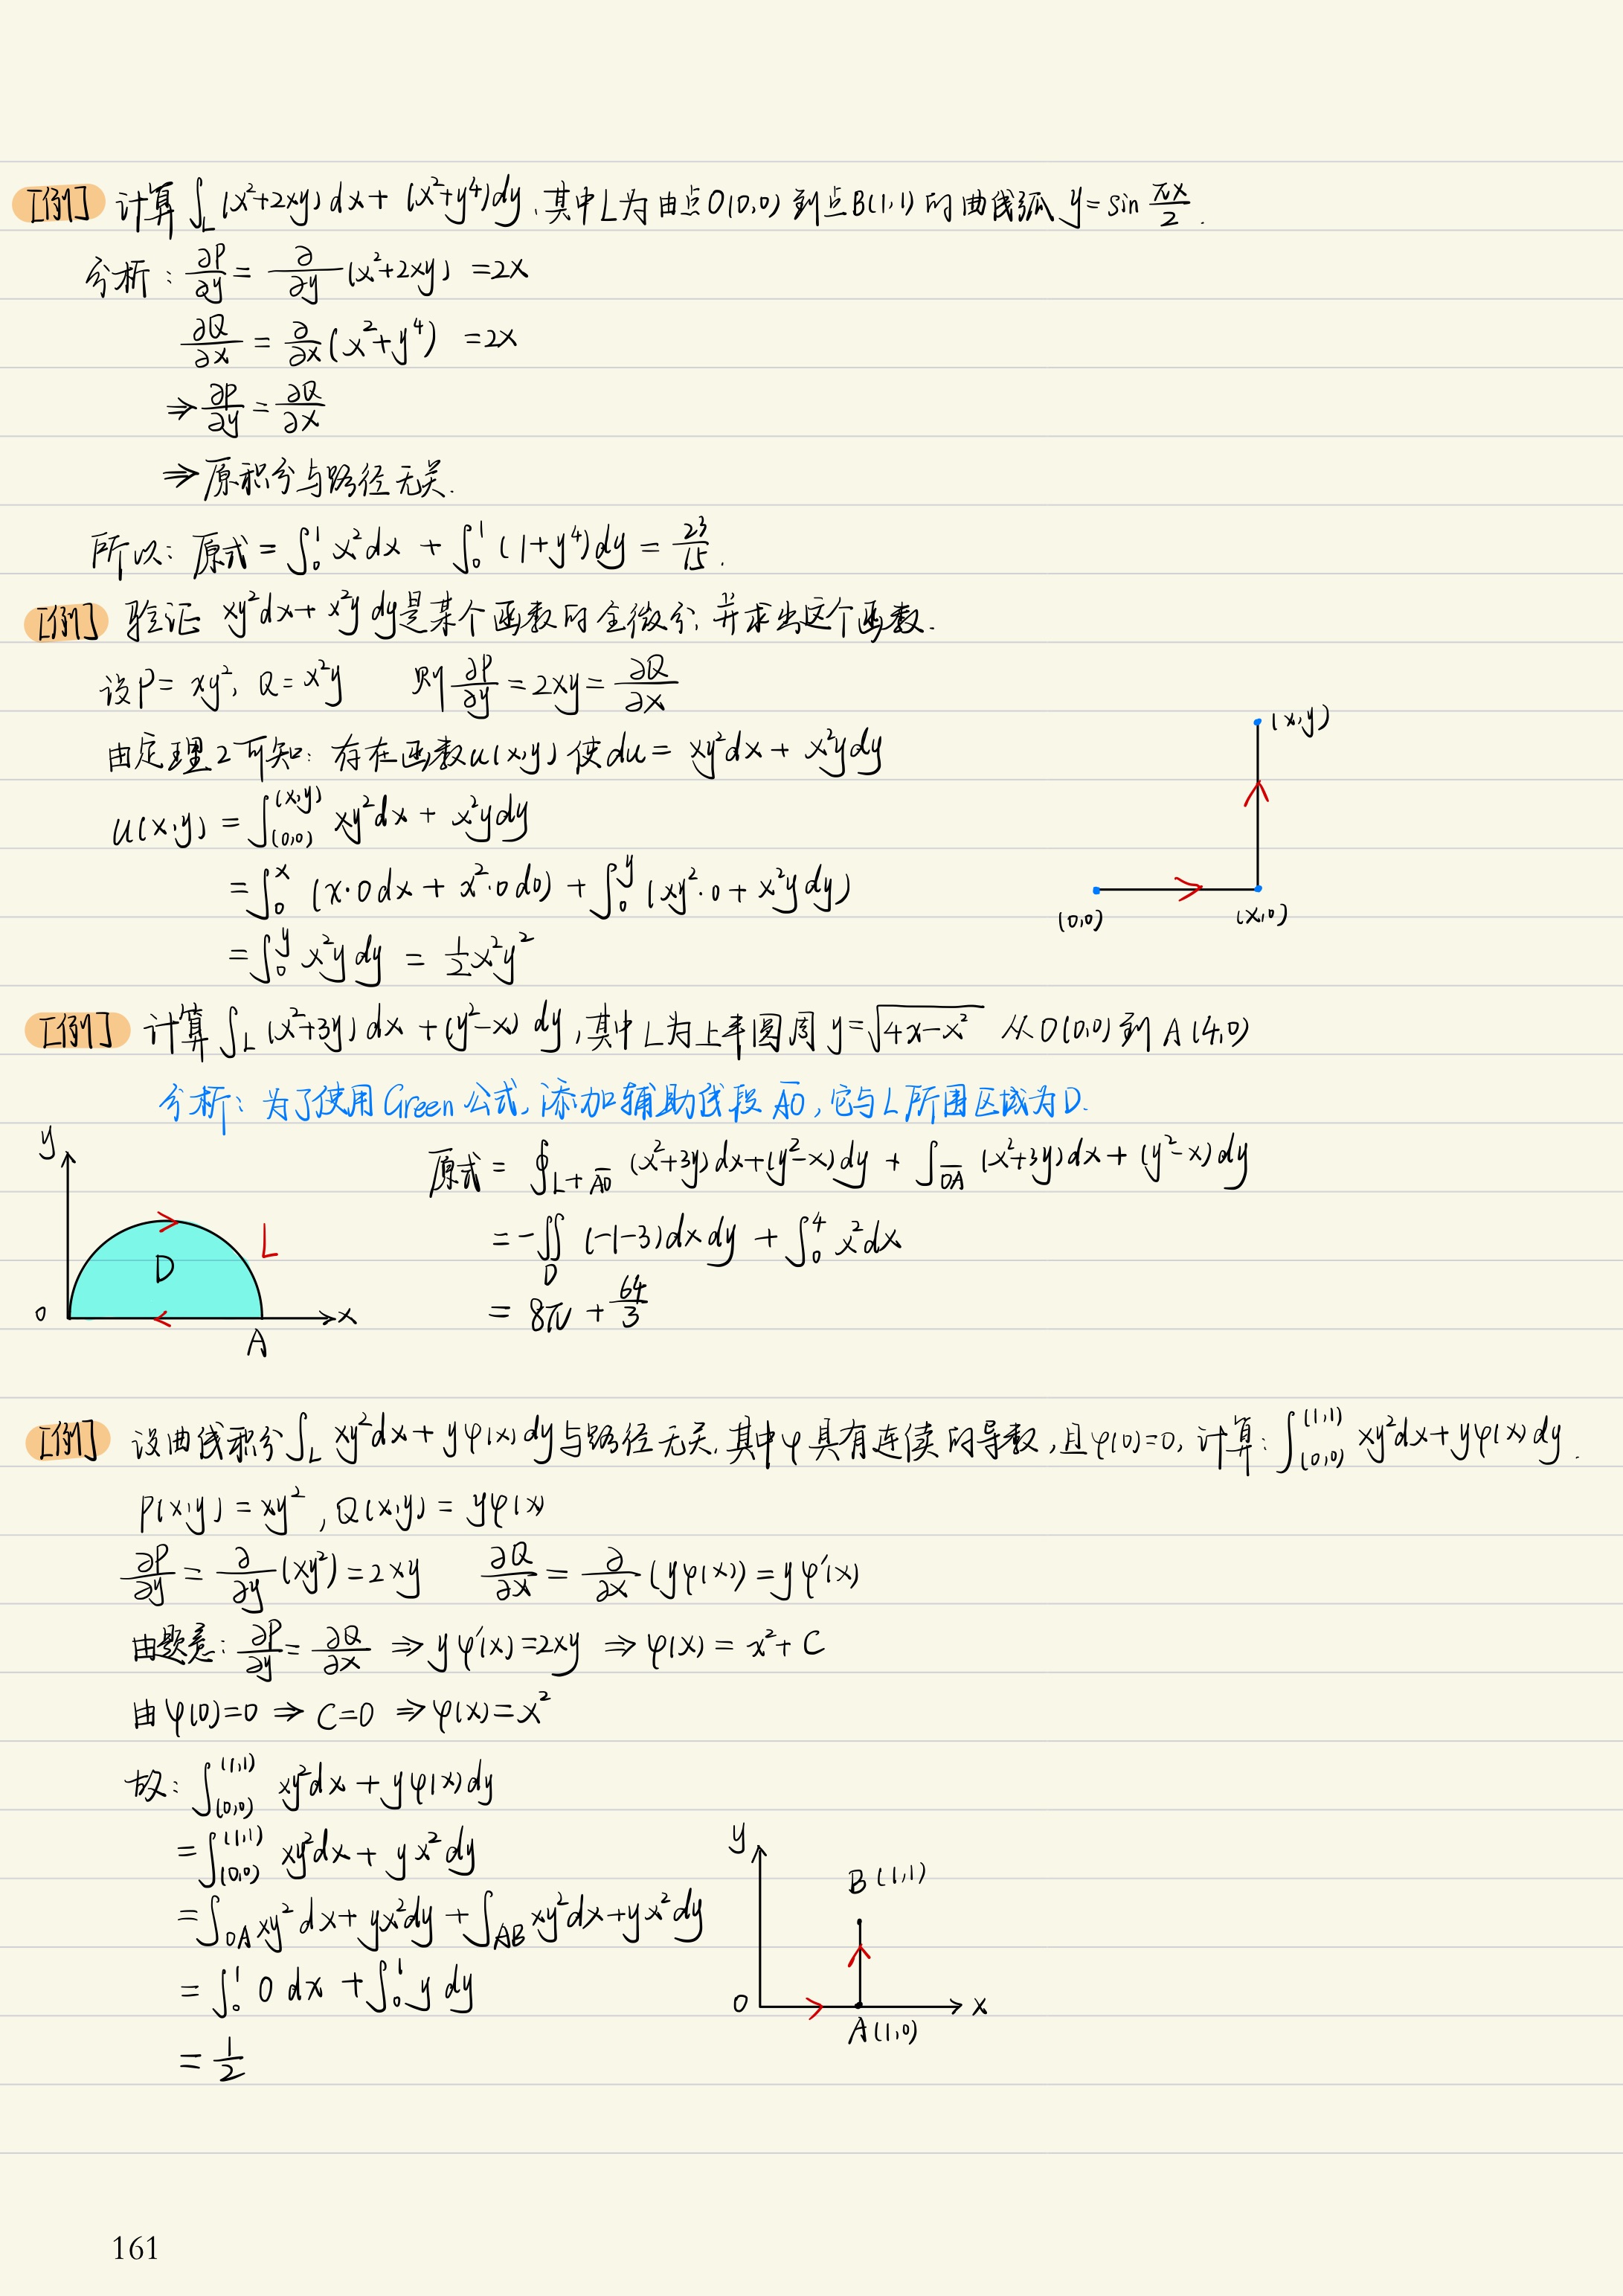 [例] 计算 ∫_L (x²+2xy)dx + (x²+y⁴)dy, 其中L为由点O(0,0)到点B(1,1)的曲线弧 y=sin πx/2.
分析: ∂P/∂y = ∂/∂y (x²+2xy) =2x
∂Q/∂x = ∂/∂x (x²+y⁴) =2x
⇒ ∂P/∂y = ∂Q/∂x
⇒ 原积分与路径无关.
所以: 原式 = ∫₀¹ x²dx + ∫₀¹ (1+y⁴)dy = 23/15.
[例] 验证 xy²dx + x²y dy是某个函数的全微分, 并求出这个函数.
设P= xy², Q= x²y 则 ∂P/∂y = 2xy = ∂Q/∂x
由定理2可知: 存在函数u(x,y) 使du = xy²dx + x²ydy
u(x,y) = ∫_(0,0)^(x,y) xy²dx + x²ydy
= ∫₀^x (x·0dx + x²·0d0) + ∫₀^y (xy²·0 + x²ydy)
= ∫₀^y x²y dy = ½x²y²
(x,y)
(0,0) (x,0)
[例] 计算 ∫_L (x²+3y)dx + (y²-x)dy, 其中L为上半圆周 y=√(4x-x²) 从O(0,0)到A(4,0)
分析: 为了使用Green公式, 添加辅助线段 A̅O̅, 它与L所围区域为D.
原式 = ∮_(L+A̅O̅) (x²+3y)dx+(y²-x)dy + ∫_O̅A̅ (x²+3y)dx + (y²-x)dy
= -∬_D (-1-3)dxdy + ∫₀⁴ x²dx
= 8π + 64/3
y
L
D
0 x
A
[例] 设曲线积分∫_L xy²dx + yφ(x)dy与路径无关, 其中φ具有连续的导数, 且φ(0)=0, 计算: ∫_(0,0)^(1,1) xy²dx + yφ(x)dy.
P(x,y) = xy², Q(x,y) = yφ(x)
∂P/∂y = ∂/∂y (xy²) = 2xy ∂Q/∂x = ∂/∂x (yφ(x)) = yφ′(x)
由题意: ∂P/∂y = ∂Q/∂x ⇒ yφ′(x)=2xy ⇒ φ(x) = x²+C
由φ(0)=0 ⇒ C=0 ⇒ φ(x)=x²
故: ∫_(0,0)^(1,1) xy²dx + yφ(x)dy
= ∫_(0,0)^(1,1) xy²dx + yx²dy
= ∫_OA xy²dx + yx²dy + ∫_AB xy²dx + yx²dy
= ∫₀¹ 0 dx + ∫₀¹ y dy
= 1/2
y
B(1,1)
0 x
A(1,0)
161